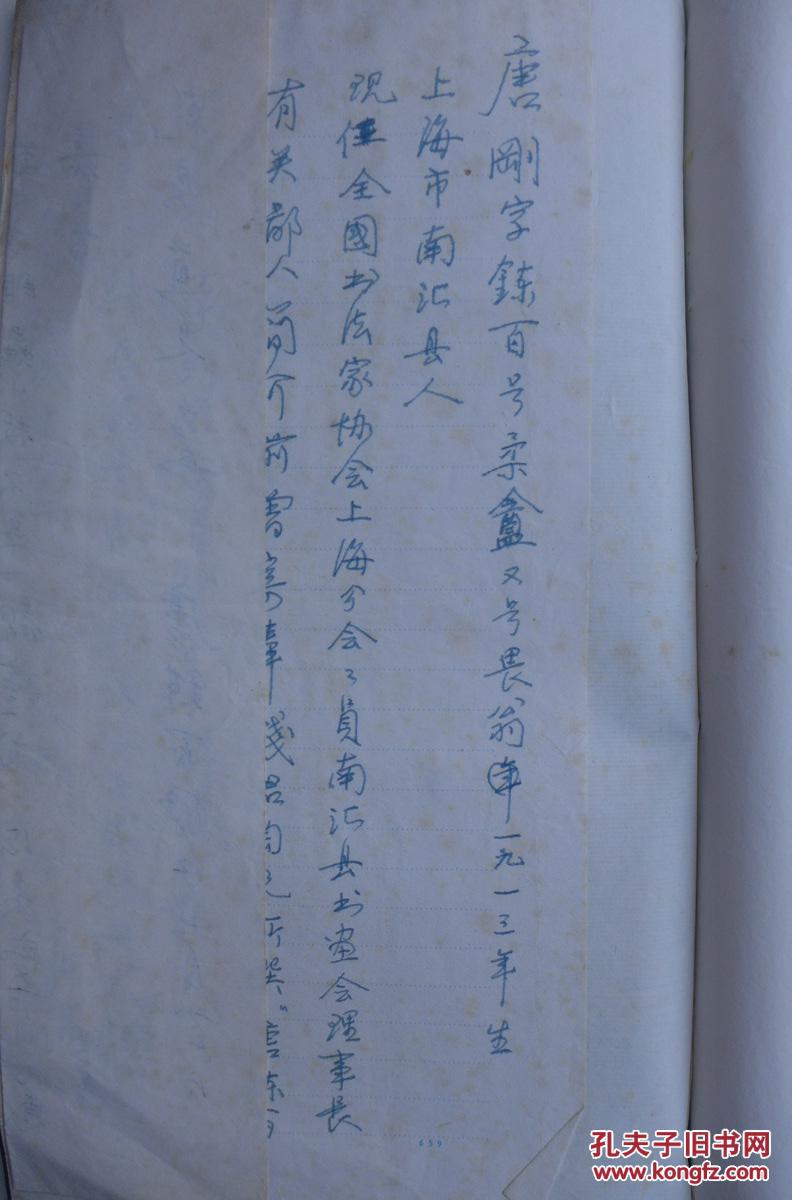 唐剛字鍊百号柔盦又号畏翁年一九一三年生
上海市南汇县人
现任全國书法家协会上海分会々員南汇县书画会理事長
有关鄙人简介前曾寄
659
孔夫子旧书网
www.kongfz.com